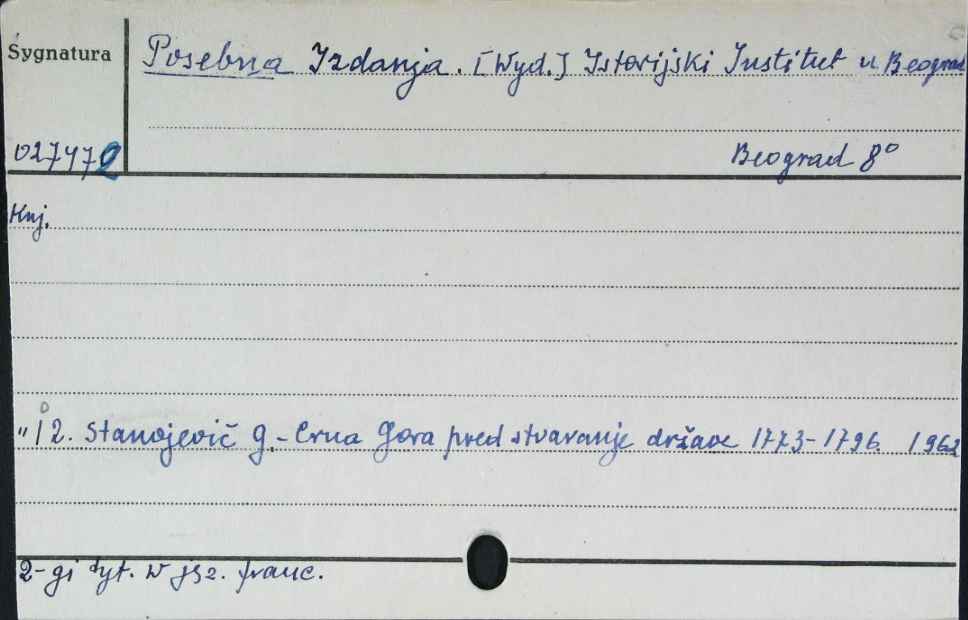 Sygnatura
Posebna Izdanja. [Wyd.] Istorijski Institut u Beograd
027472
Beograd 8°
Knj.
" 12. Stanojevič G. - Crna Gora pred stvaranje države 1773-1796. 1962
2-gi tyt. w jęz. franc.